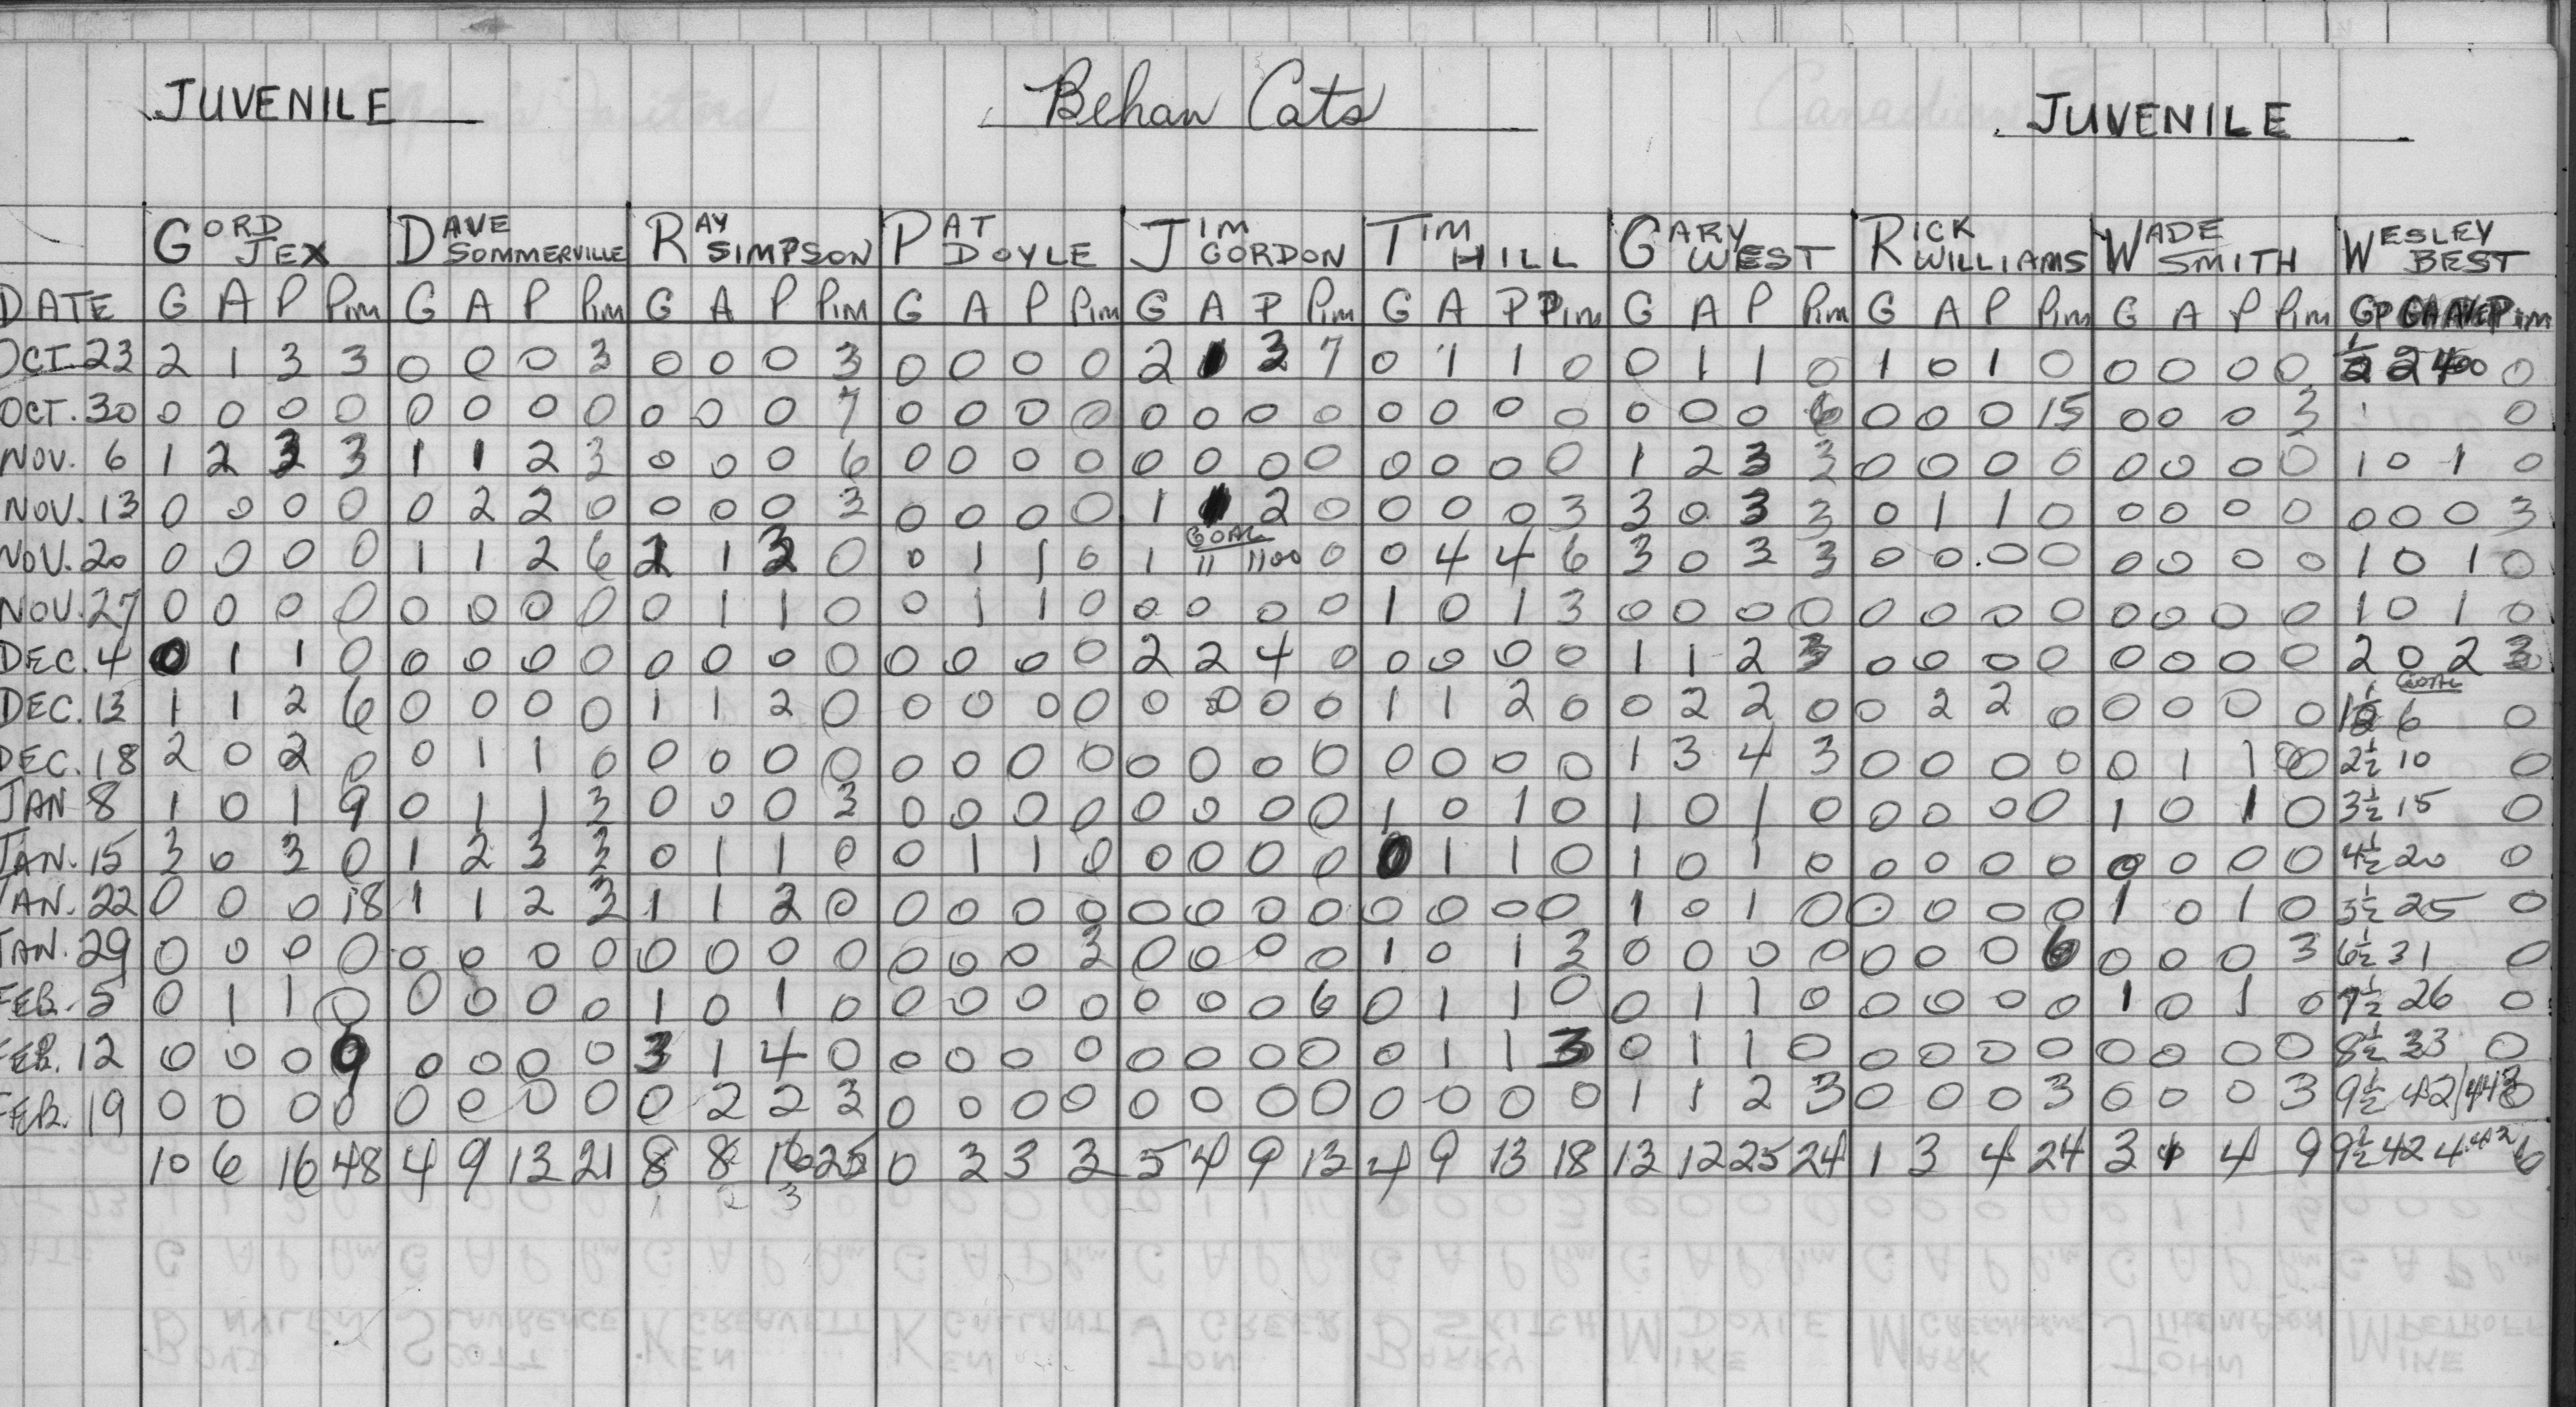 JUVENILE Behan Cats JUVENILE
GORD JEX DAVE SOMMERVILLE RAY SIMPSON PAT DOYLE JIM GORDON TIM HILL GARY WEST RICK WILLIAMS WADE SMITH WESLEY BEST
DATE G A P Pim G A P Pim G A P Pim G A P Pim G A P Pim G A P Pim G A P Pim G A P Pim G A P Pim GP GA AVE Pim
OCT. 23 2 1 3 3 0 0 0 3 0 0 0 3 0 0 0 0 2 1 3 7 0 1 1 0 0 1 1 0 1 0 1 0 0 0 0 0 1/2 2 400 0
OCT. 30 0 0 0 0 0 0 0 0 0 0 0 7 0 0 0 0 0 0 0 0 0 0 0 0 0 0 0 6 0 0 0 15 0 0 0 3 0
NOV. 6 1 2 3 3 1 1 2 3 0 0 0 6 0 0 0 0 0 0 0 0 0 0 0 0 1 2 3 3 0 0 0 0 0 0 0 0 1 0 1 0
NOV. 13 0 0 0 0 0 2 2 0 0 0 0 3 0 0 0 0 1 2 0 0 0 0 3 3 0 3 3 0 1 1 0 0 0 0 0 0 0 0 3
NOV. 20 0 0 0 0 1 1 2 6 2 1 3 0 0 1 1 0 1 GOAL 11 1100 0 0 4 4 6 3 0 3 3 0 0 0 0 0 0 0 0 1 0 1 0
NOV. 27 0 0 0 0 0 0 0 0 0 1 1 0 0 1 1 0 0 0 0 0 1 0 1 3 0 0 0 0 0 0 0 0 0 0 0 0 1 0 1 0
DEC. 4 0 1 1 0 0 0 0 0 0 0 0 0 0 0 0 0 2 2 4 0 0 0 0 0 1 1 2 3 0 0 0 0 0 0 0 0 2 0 2 3
DEC. 13 1 1 2 6 0 0 0 0 1 1 2 0 0 0 0 0 0 0 0 0 1 1 2 0 0 2 2 0 0 2 2 0 0 0 0 0 1 1/2 GOAL 6 0
DEC. 18 2 0 2 0 0 1 1 0 0 0 0 0 0 0 0 0 0 0 0 0 0 0 0 0 1 3 4 3 0 0 0 0 0 1 1 0 2 1/2 10 0
JAN 8 1 0 1 9 0 1 1 3 0 0 0 3 0 0 0 0 0 0 0 0 1 0 1 0 1 0 1 0 0 0 0 0 1 0 1 0 3 1/2 15 0
JAN. 15 3 0 3 0 1 2 3 3 0 1 1 0 0 1 1 0 0 0 0 0 0 1 1 0 1 0 1 0 0 0 0 0 0 0 0 0 4 1/2 20 0
JAN. 22 0 0 0 18 1 1 2 3 1 1 2 0 0 0 0 0 0 0 0 0 0 0 0 0 1 0 1 0 0 0 0 0 1 0 1 0 5 1/2 25 0
JAN. 29 0 0 0 0 0 0 0 0 0 0 0 0 0 0 0 3 0 0 0 0 1 0 1 3 0 0 0 0 0 0 0 6 0 0 0 3 6 1/2 31 0
FEB. 5 0 1 1 0 0 0 0 0 1 0 1 0 0 0 0 0 0 0 0 6 0 1 1 0 0 1 1 0 0 0 0 0 1 0 1 0 7 1/2 26 0
FEB. 12 0 0 0 9 0 0 0 0 3 1 4 0 0 0 0 0 0 0 0 0 0 1 1 3 0 1 1 0 0 0 0 0 0 0 0 0 8 1/2 33 0
FEB. 19 0 0 0 0 0 0 0 0 0 2 2 3 0 0 0 0 0 0 0 0 0 0 0 0 1 1 2 3 0 0 0 3 0 0 0 3 9 1/2 42
10 6 16 48 4 9 13 21 8 8 16 25 0 3 3 3 5 4 9 13 4 9 13 18 13 12 25 24 1 3 4 24 3 1 4 9 9 1/2 42 4.42 6
1 2 3